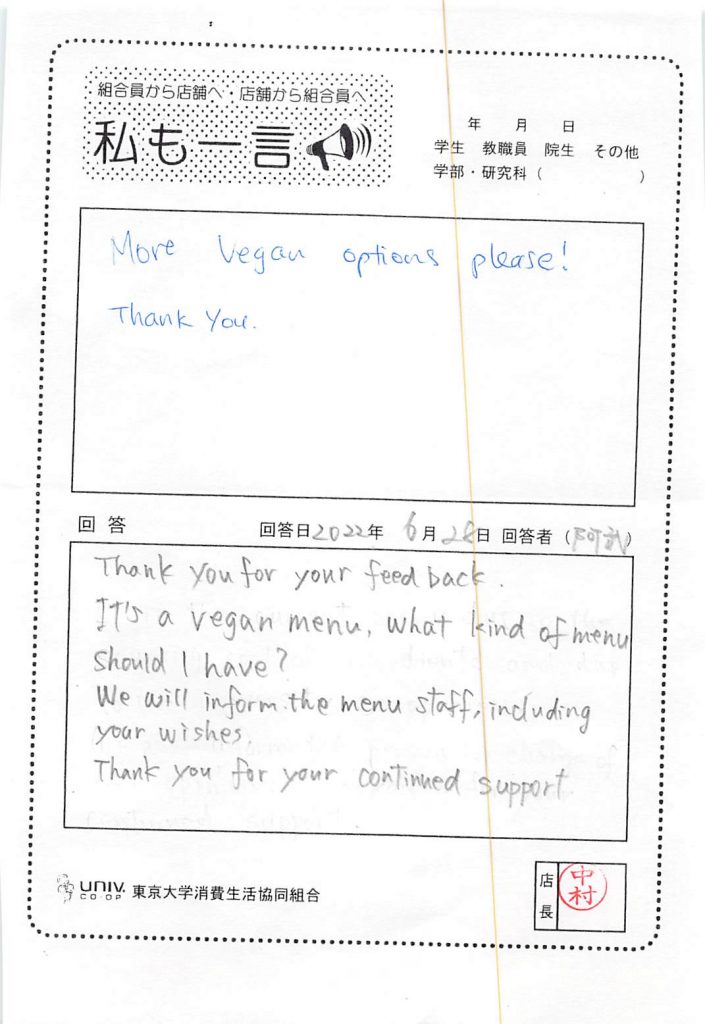 組合員から店舗へ・店舗から組合員へ
私も一言
年 月 日
学生 教職員 院生 その他
学部・研究科( )
More Vegan options please!
Thank You.
回答 回答日2022年 6月28日 回答者(阿武)
Thank you for your feedback.
It's a vegan menu, what kind of menu
should I have?
We will inform the menu staff, including
your wishes.
Thank you for your continued support.
UNIV.
CO-OP 東京大学消費生活協同組合
店長 中村